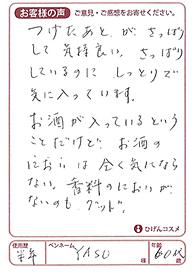 お客様の声 ご意見・ご感想をお寄せください。
つけたあと、が、さっぱり
して気持良い。さっぱり
しているのに しっとりで
気に入っています。
お酒が入っているという
ことだけど お酒の
においは 全く気になら
ない。香料のにおいが
ないのも グッド。
ひげんコスメ
使用歴 半年 ペンネーム YASU 様 年齢 60代 歳